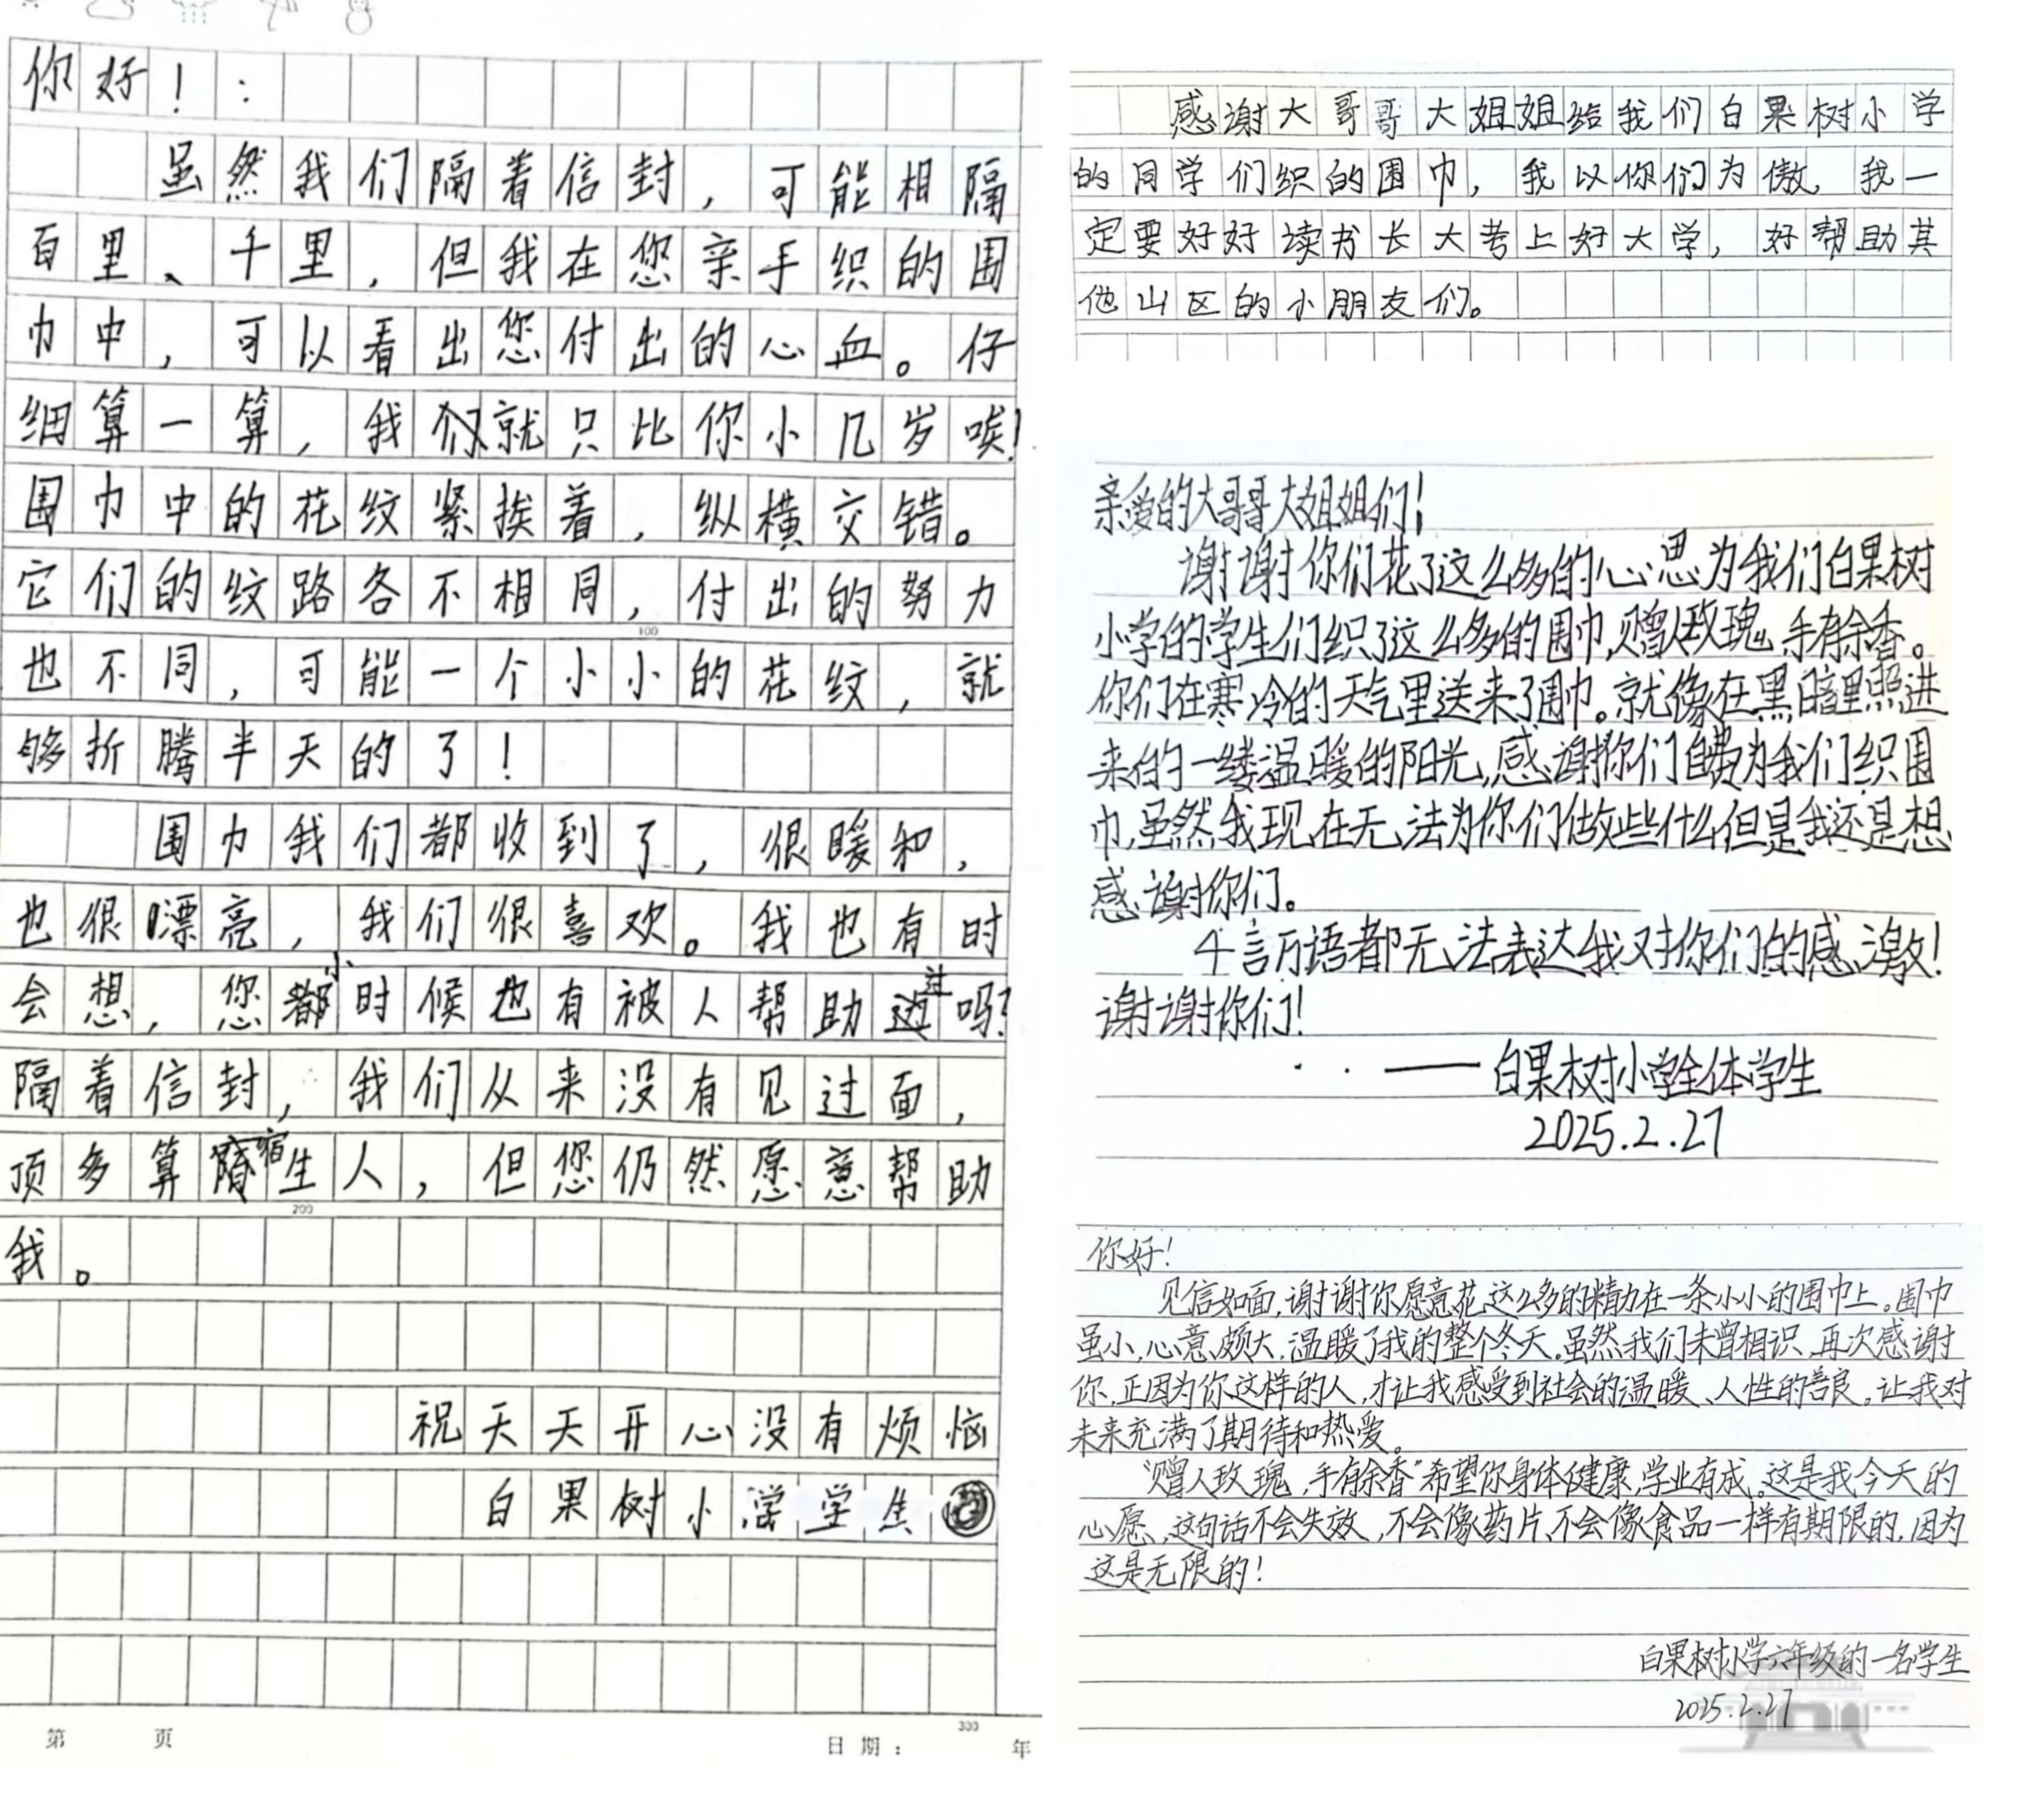 你好！：
虽然我们隔着信封，可能相隔
百里、千里，但我在您亲手织的围
巾中，可以看出您付出的心血。仔
细算一算，我们就只比你小几岁唉！
围巾中的花纹紧挨着，纵横交错。
它们的纹路各不相同，付出的努力
也不同，可能一个小小的花纹，就
够折腾半天的了！
围巾我们都收到了，很暖和，
也很漂亮，我们很喜欢。我也有时
会想，您小时候也有被人帮助过吗？
隔着信封，我们从来没有见过面，
顶多算生人，但您仍然愿意帮助
我。
祝天天开心没有烦恼
白果树小学学生
第 页
日期： 年
100
200
300
感谢大哥哥大姐姐给我们白果树小学
的同学们织的围巾，我以你们为傲，我一
定要好好读书长大考上好大学，好帮助其
他山区的小朋友们。
亲爱的大哥哥大姐姐们！
谢谢你们花了这么多的心思为我们白果树
小学的学生们织了这么多的围巾，赠人玫瑰，手有余香。
你们在寒冷的天气里送来了围巾。就像在黑暗里照进
来的一缕温暖的阳光，感谢你们自费为我们织围
巾，虽然我现在无法为你们做些什么但是我还是想
感谢你们。
千言万语都无法表达我对你们的感激！
谢谢你们！
——白果树小学全体学生
2025.2.27
你好！
见信如面，谢谢你愿意花这么多的精力在一条小小的围巾上。围巾
虽小，心意颇大，温暖了我的整个冬天。虽然我们未曾相识，再次感谢
你，正因为你这样的人，才让我感受到社会的温暖、人性的善良。让我对
未来充满了期待和热爱。
“赠人玫瑰，手有余香”希望你身体健康，学业有成。这是我今天的
心愿，这句话不会失效，不会像药片、不会像食品一样有期限的，因为
这是无限的！
白果树小学六年级的一名学生
2025.2.27